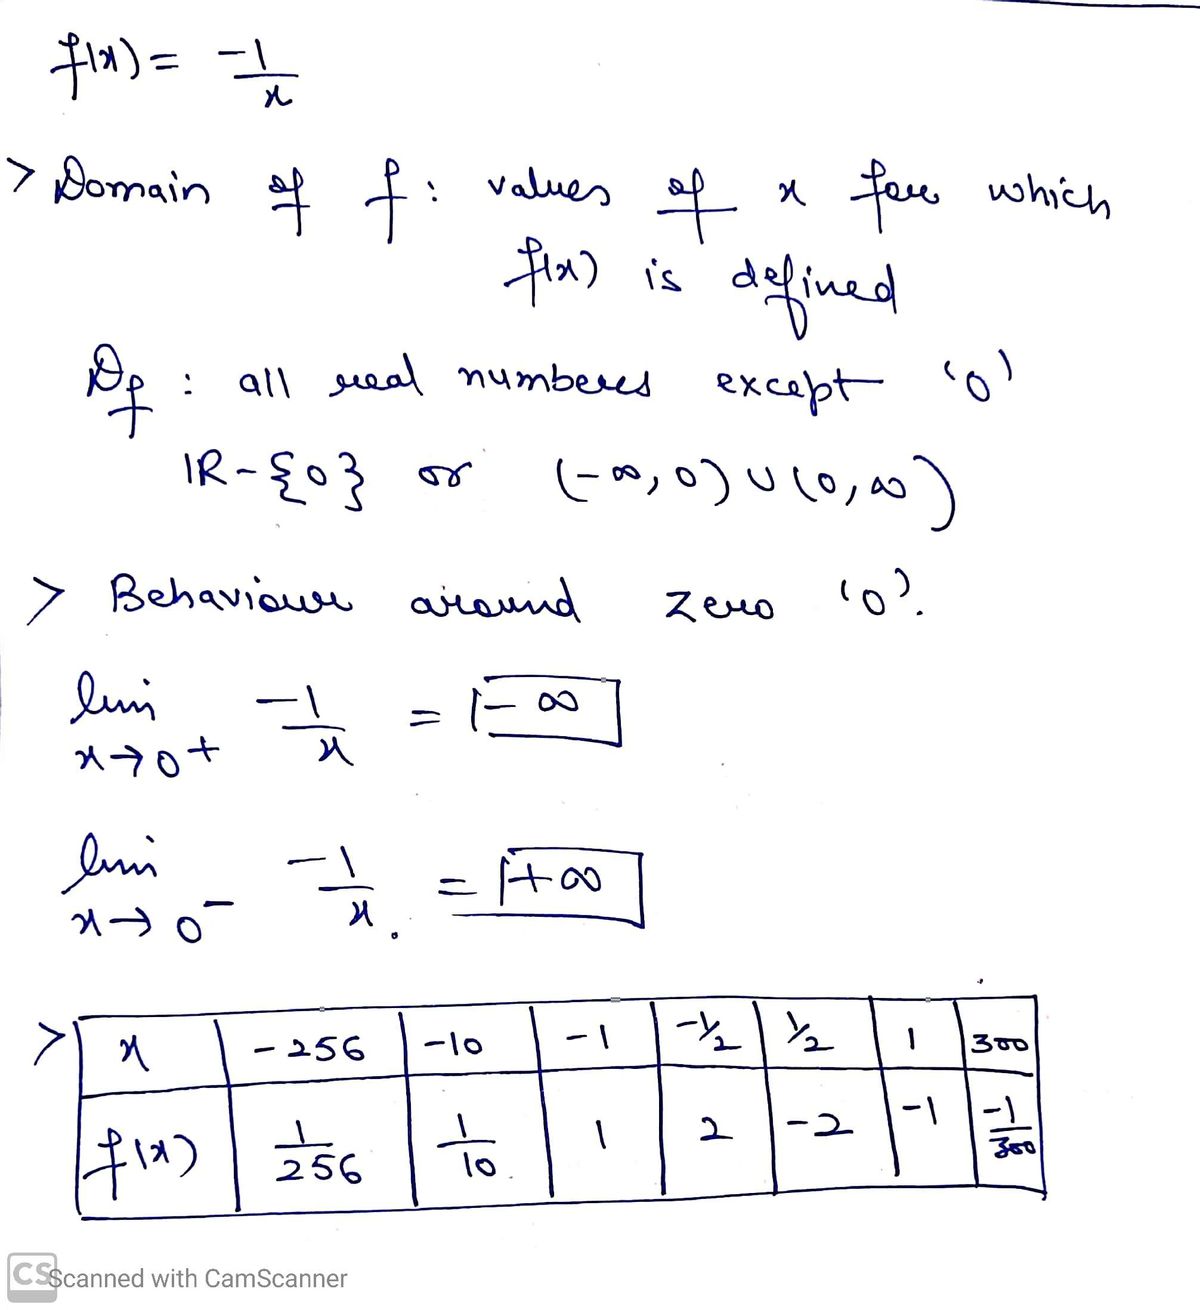 f(x) = -1/x
> Domain of f : values of x for which
f(x) is defined
Df : all real numbers except '0'
IR-{0} or (-∞, 0) ∪ (0, ∞)
> Behaviour around zero '0'.
lim x→0+ -1/x = -∞
lim x→0- -1/x. = +∞
> x -256 -10 -1 -1/2 1/2 1 300
f(x) 1/256 1/10. 1 2 -2 -1 -1/300
CS Scanned with CamScanner